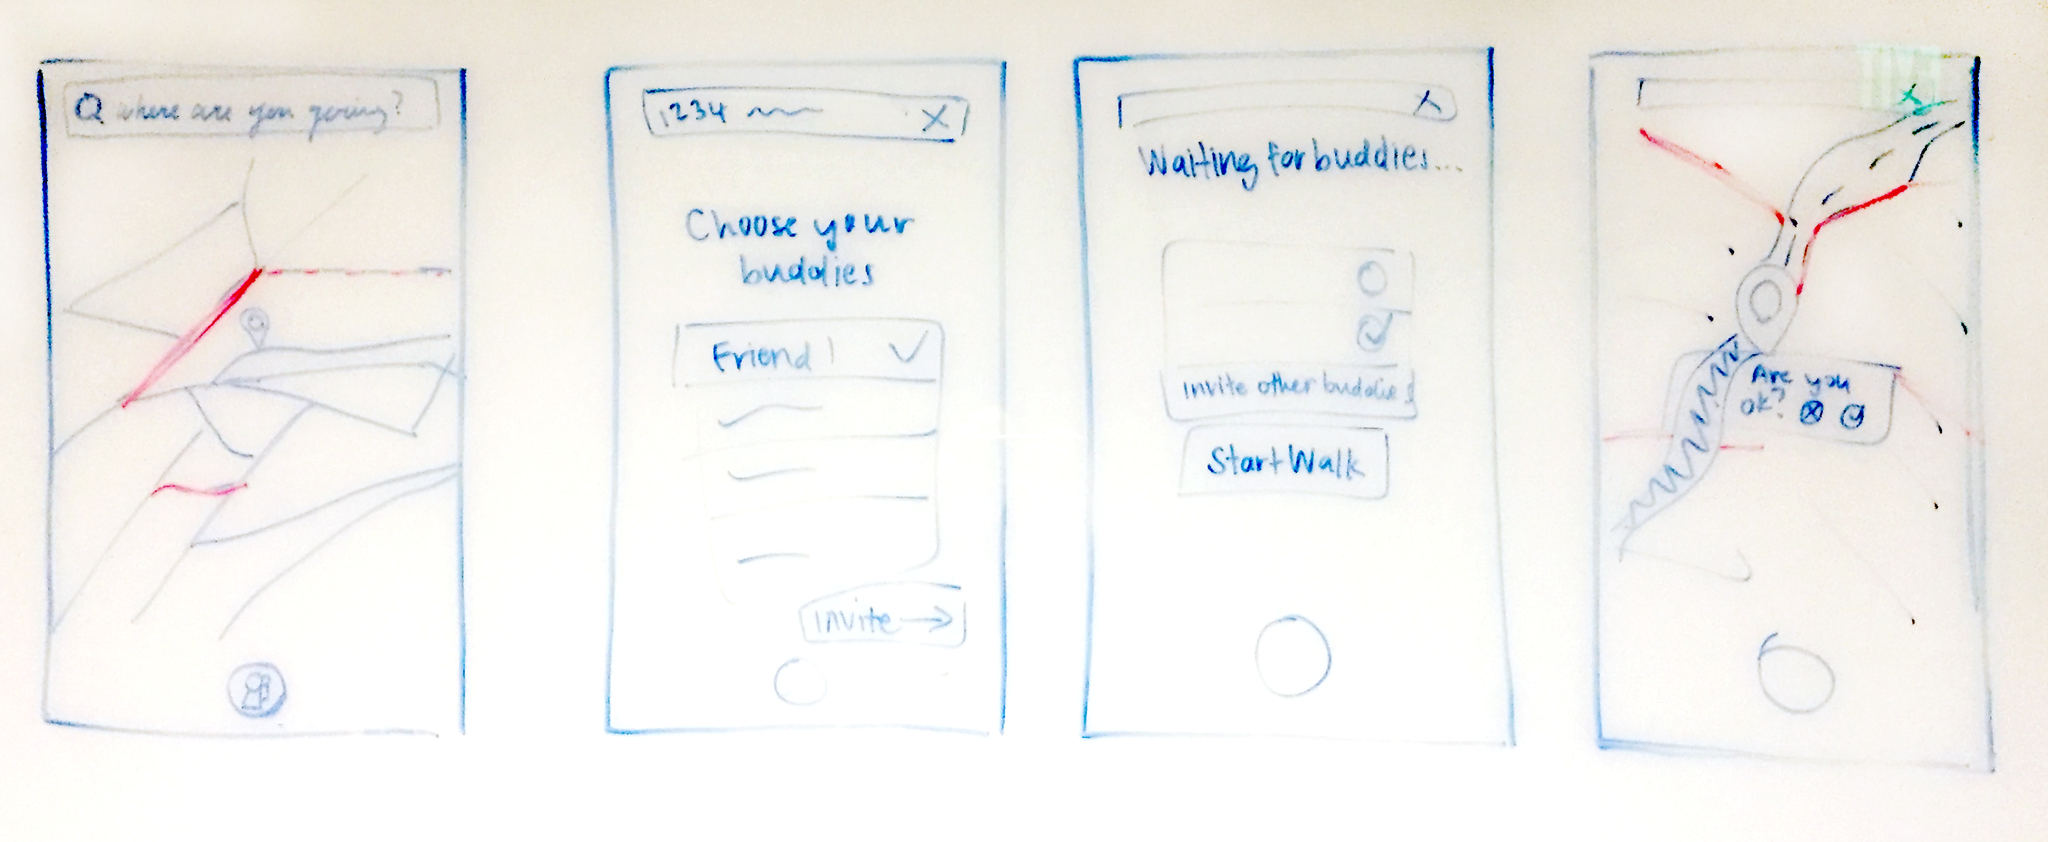 Where are you going?
1234
X
Choose your
buddies
Friend 1
Invite
X
Waiting for buddies...
Invite other buddies
Start Walk
X
Are you
ok?